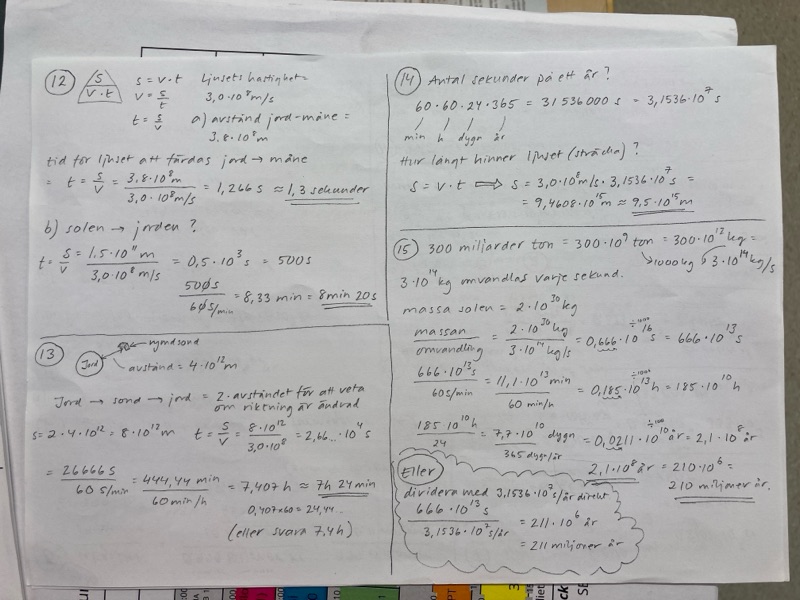 12
s
v·t
s = v·t
v = s/t
t = s/v
Ljusets hastighet =
3,0·10⁸ m/s
a) avstånd jord-måne =
3.8·10⁸ m
tid för ljuset att färdas jord → måne
= t = s/v = 3,8·10⁸ m / 3,0·10⁸ m/s = 1,266 s ≈ 1,3 sekunder
b) solen → jorden ?
t = s/v = 1.5·10¹¹ m / 3,0·10⁸ m/s = 0,5·10³ s = 500 s
500 s / 60 s/min = 8,33 min = 8 min 20 s
13
Jord
rymdsond
avstånd = 4·10¹² m
Jord → sond → jord = 2·avståndet för att veta
om riktning är ändrad
s = 2·4·10¹² = 8·10¹² m t = s/v = 8·10¹² / 3,0·10⁸ = 2,66...·10⁴ s
= 26666 s / 60 s/min = 444,44 min / 60 min/h = 7,407 h ≈ 7h 24 min
0,407×60 = 24,44...
(eller svara 7,4 h)
14
Antal sekunder på ett år ?
60·60·24·365 = 31 536 000 s = 3,1536·10⁷ s
min h dygn år
Hur långt hinner ljuset (sträcka) ?
s = v·t ⇒ s = 3,0·10⁸ m/s · 3,1536·10⁷ s =
= 9,4608·10¹⁵ m ≈ 9,5·10¹⁵ m
15
300 miljarder ton = 300·10⁹ ton = 300·10¹² kg =
→ 1000 kg 3·10¹⁴ kg/s
3·10¹⁴ kg omvandlas varje sekund.
massa solen = 2·10³⁰ kg
massan / omvandling = 2·10³⁰ kg / 3·10¹⁴ kg/s = 0,666·10¹⁶ s = 666·10¹³ s
÷1000
666·10¹³ s / 60 s/min = 11,1·10¹³ min / 60 min/h = 0,185·10¹³ h = 185·10¹⁰ h
÷1000
185·10¹⁰ h / 24 = 7,7·10¹⁰ dygn / 365 dygn/år = 0,0211·10¹⁰ år = 2,1·10⁸ år
÷100
2,1·10⁸ år = 210·10⁶ =
210 miljoner år.
Eller
dividera med 3,1536·10⁷ s/år direkt
666·10¹³ s / 3,1536·10⁷ s/år = 211·10⁶ år
= 211 miljoner år